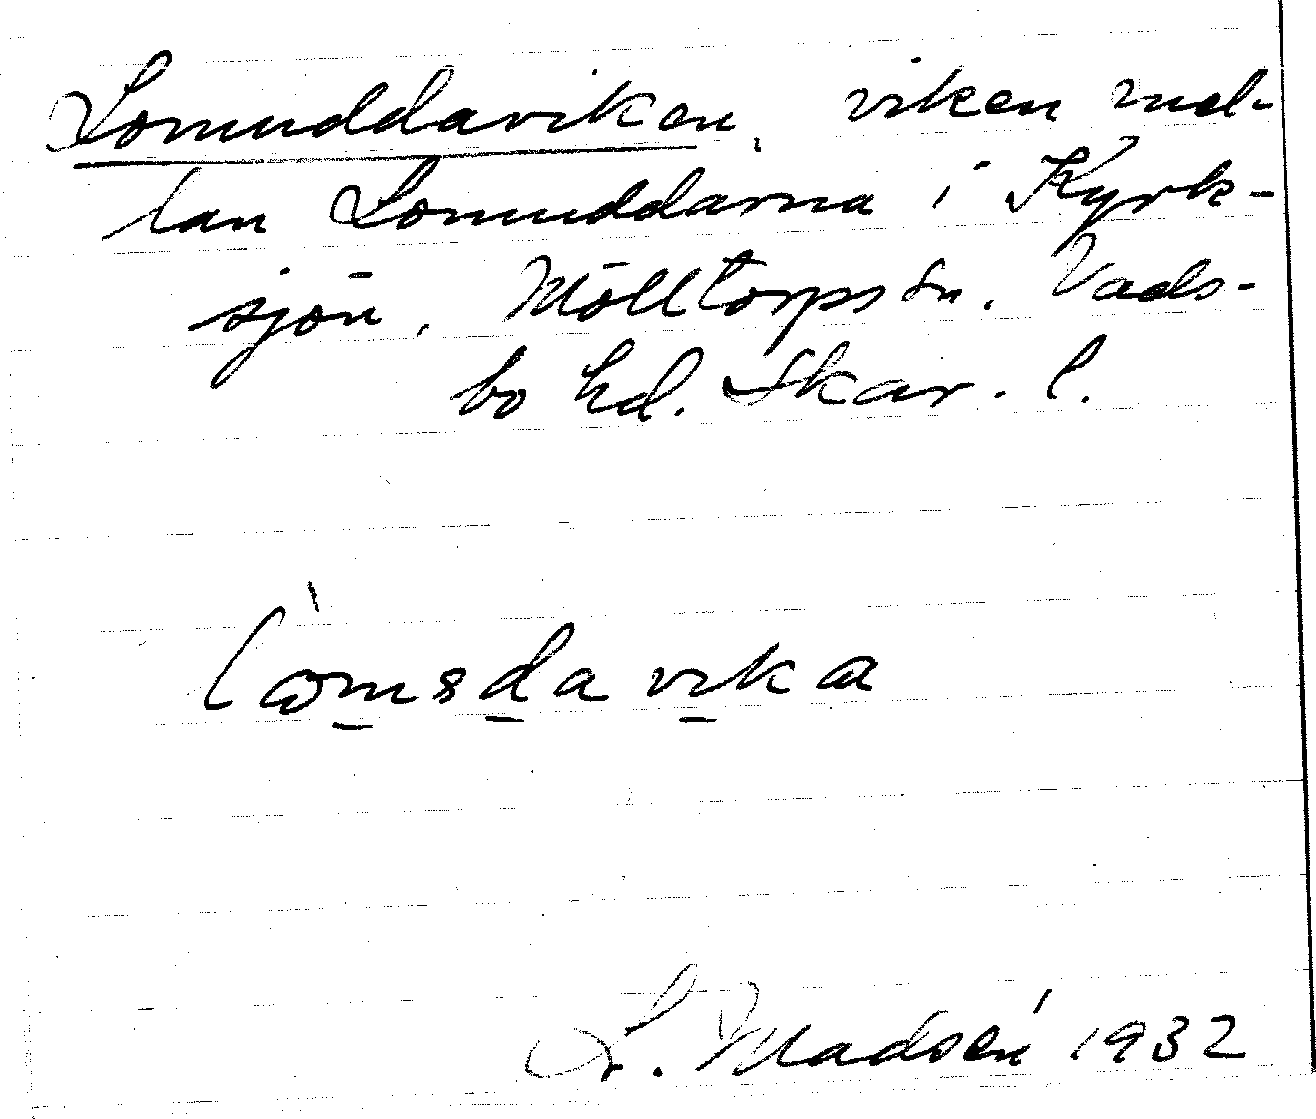 Lomuddaviken, viken mel-
lan Lomuddarna i Kyrk-
sjön, Mölltorps sn. Vads-
bo hd. Skar. l.
L. Madsén 1932